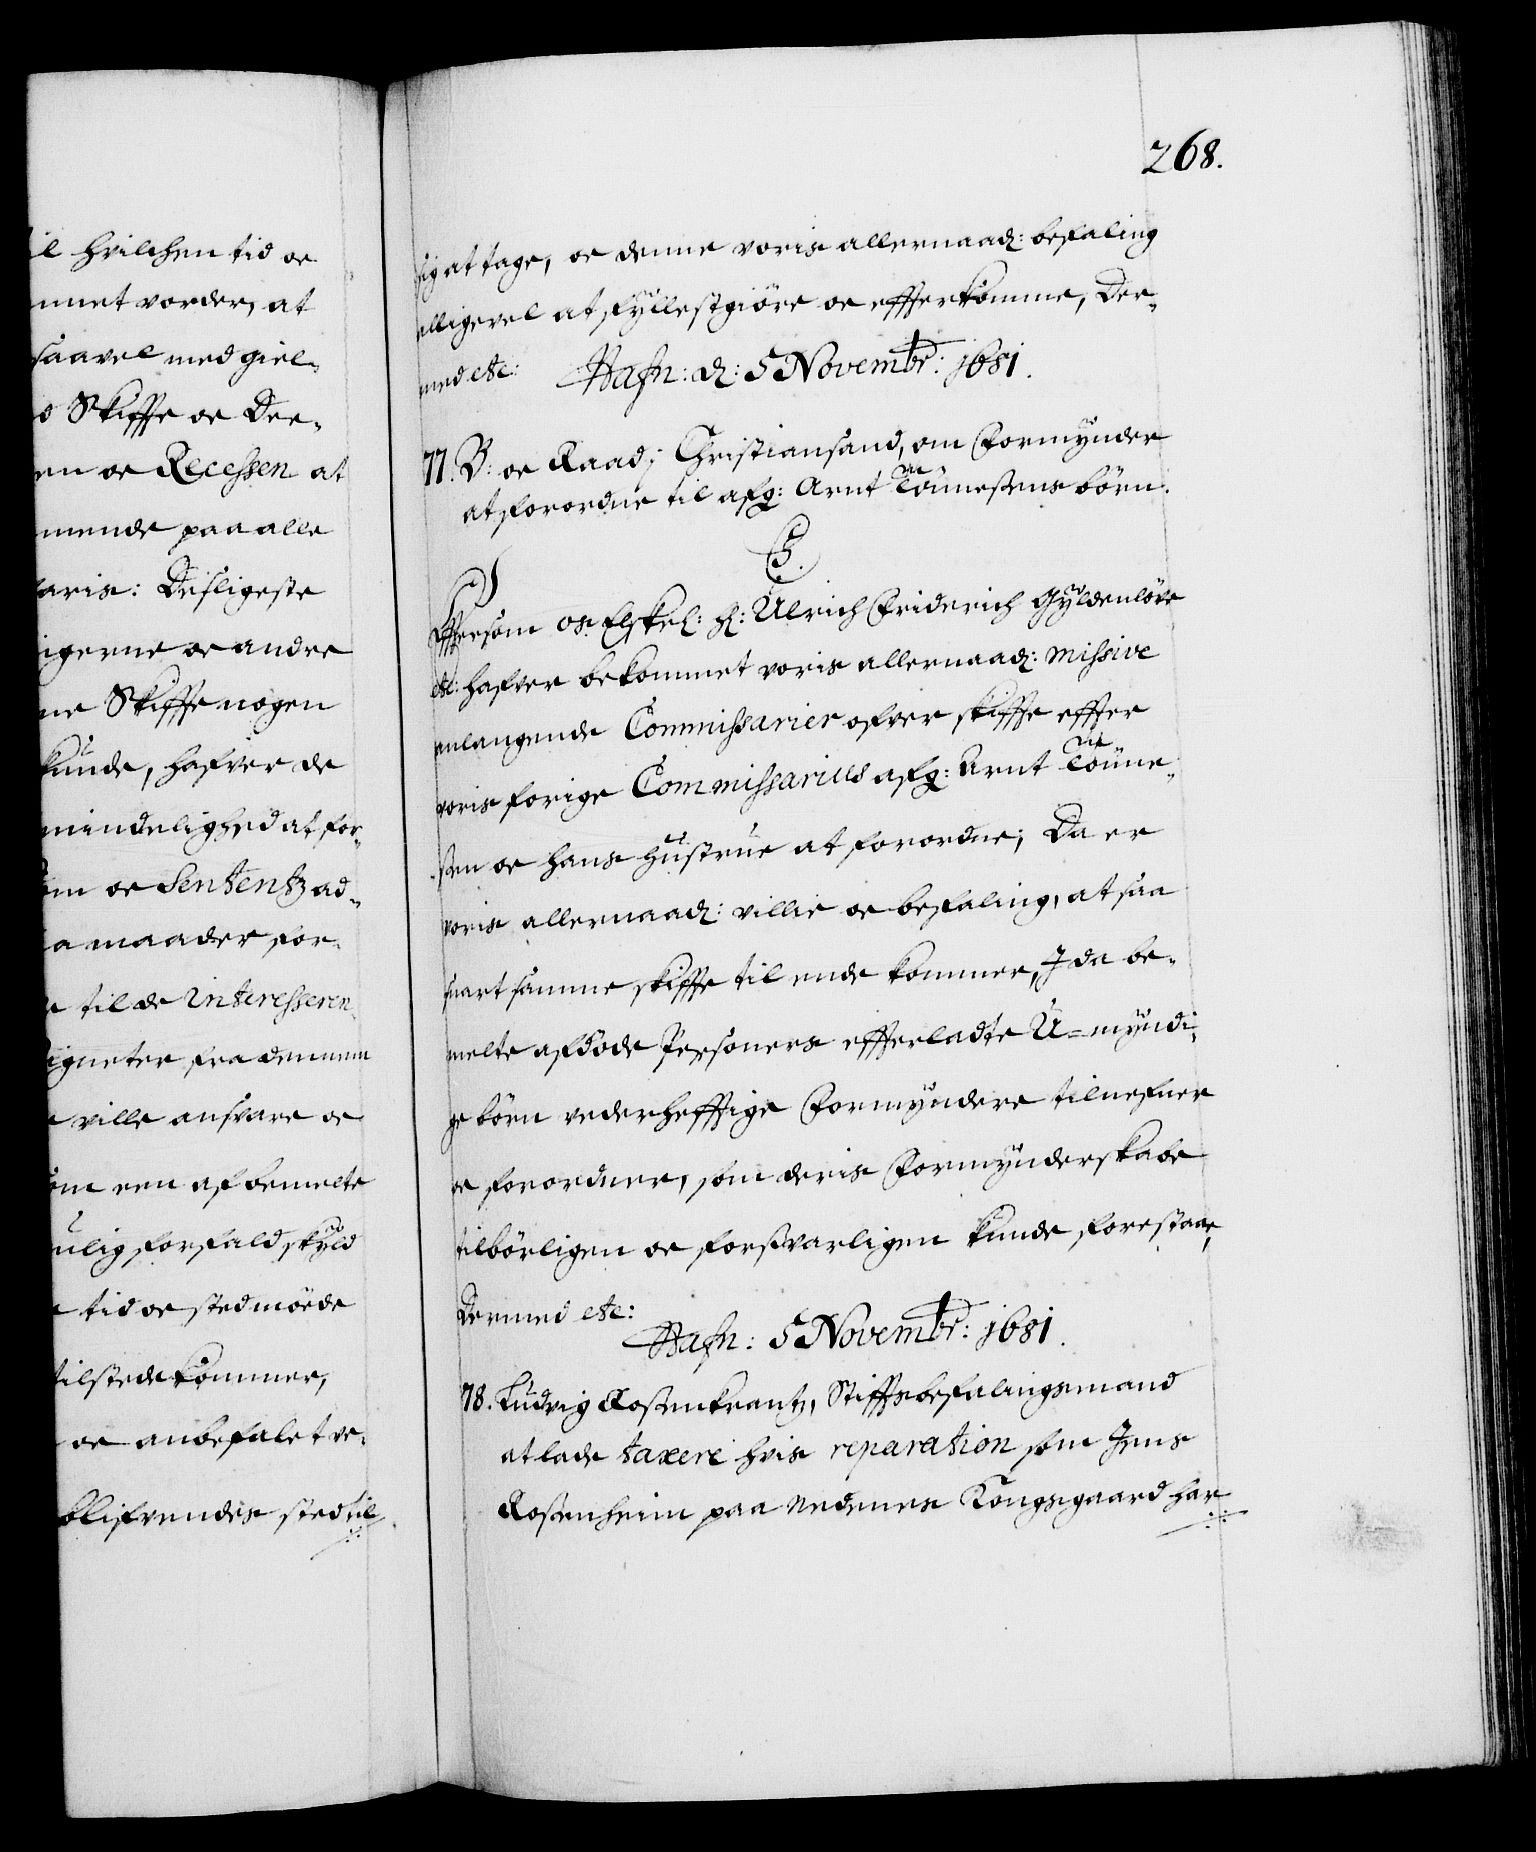 il hvilchen tid oc
mmet vorder, at
saavel med giel-
d Skiffte oc Dee-
en oc Recessen at
mende paa alle
aris: Desligeste
igerne oc andre
ne Skiffte nogen
kunde, hafver de
mindelighed at for-
om oc Sententz ad-
a maader for-
e til de interesseren
igneter fra dennem
e ville ansvare oc
om een af bemelte
ulig forfald skyld
e tid oc sted møde
tilstede kommer,
oc anbefalet ve-
blifvendes sted til
268.
sig at tage, oc denne voris allernaad: befaling
alligevel at fyllestgiøre oc effterkomme, Der-
med etc: Hafn: d: 5 Novembr: 1681.
77. B: oc Raad i Christiansand, om Formynder
at forordne til afg: Arnt Tønnesens børn.
C5.
Eftersom os Elskel: h: Ulrich Friderich Gyldenløve
etc: hafver bekommet voris allernaad: missive
anlangende Commissarier ofver skiffte effter
voris forige Commissarius afg: Arnt Tønne-
sen oc hans hustrue at forordne; Da er
voris allernaad: villie oc befaling, at saa
snart samme skiffte til ende kommer, I da be-
melte afdøde Personers effterladte U=myndi-
ge børn vederhefftige Formyndere tilnefner
oc forordner, som deris Formynderskabe
tilbørligen oc forsvarligen kunde forestaae,
Dermed etc:
Hafn: 5 Novembr: 1681.
78. Ludvig Rosenkrantz, Stifftsbefalingsmand
at lade taxere hvis reparation som Jens
Rosenheim paa Nedenes Kongsgaard har